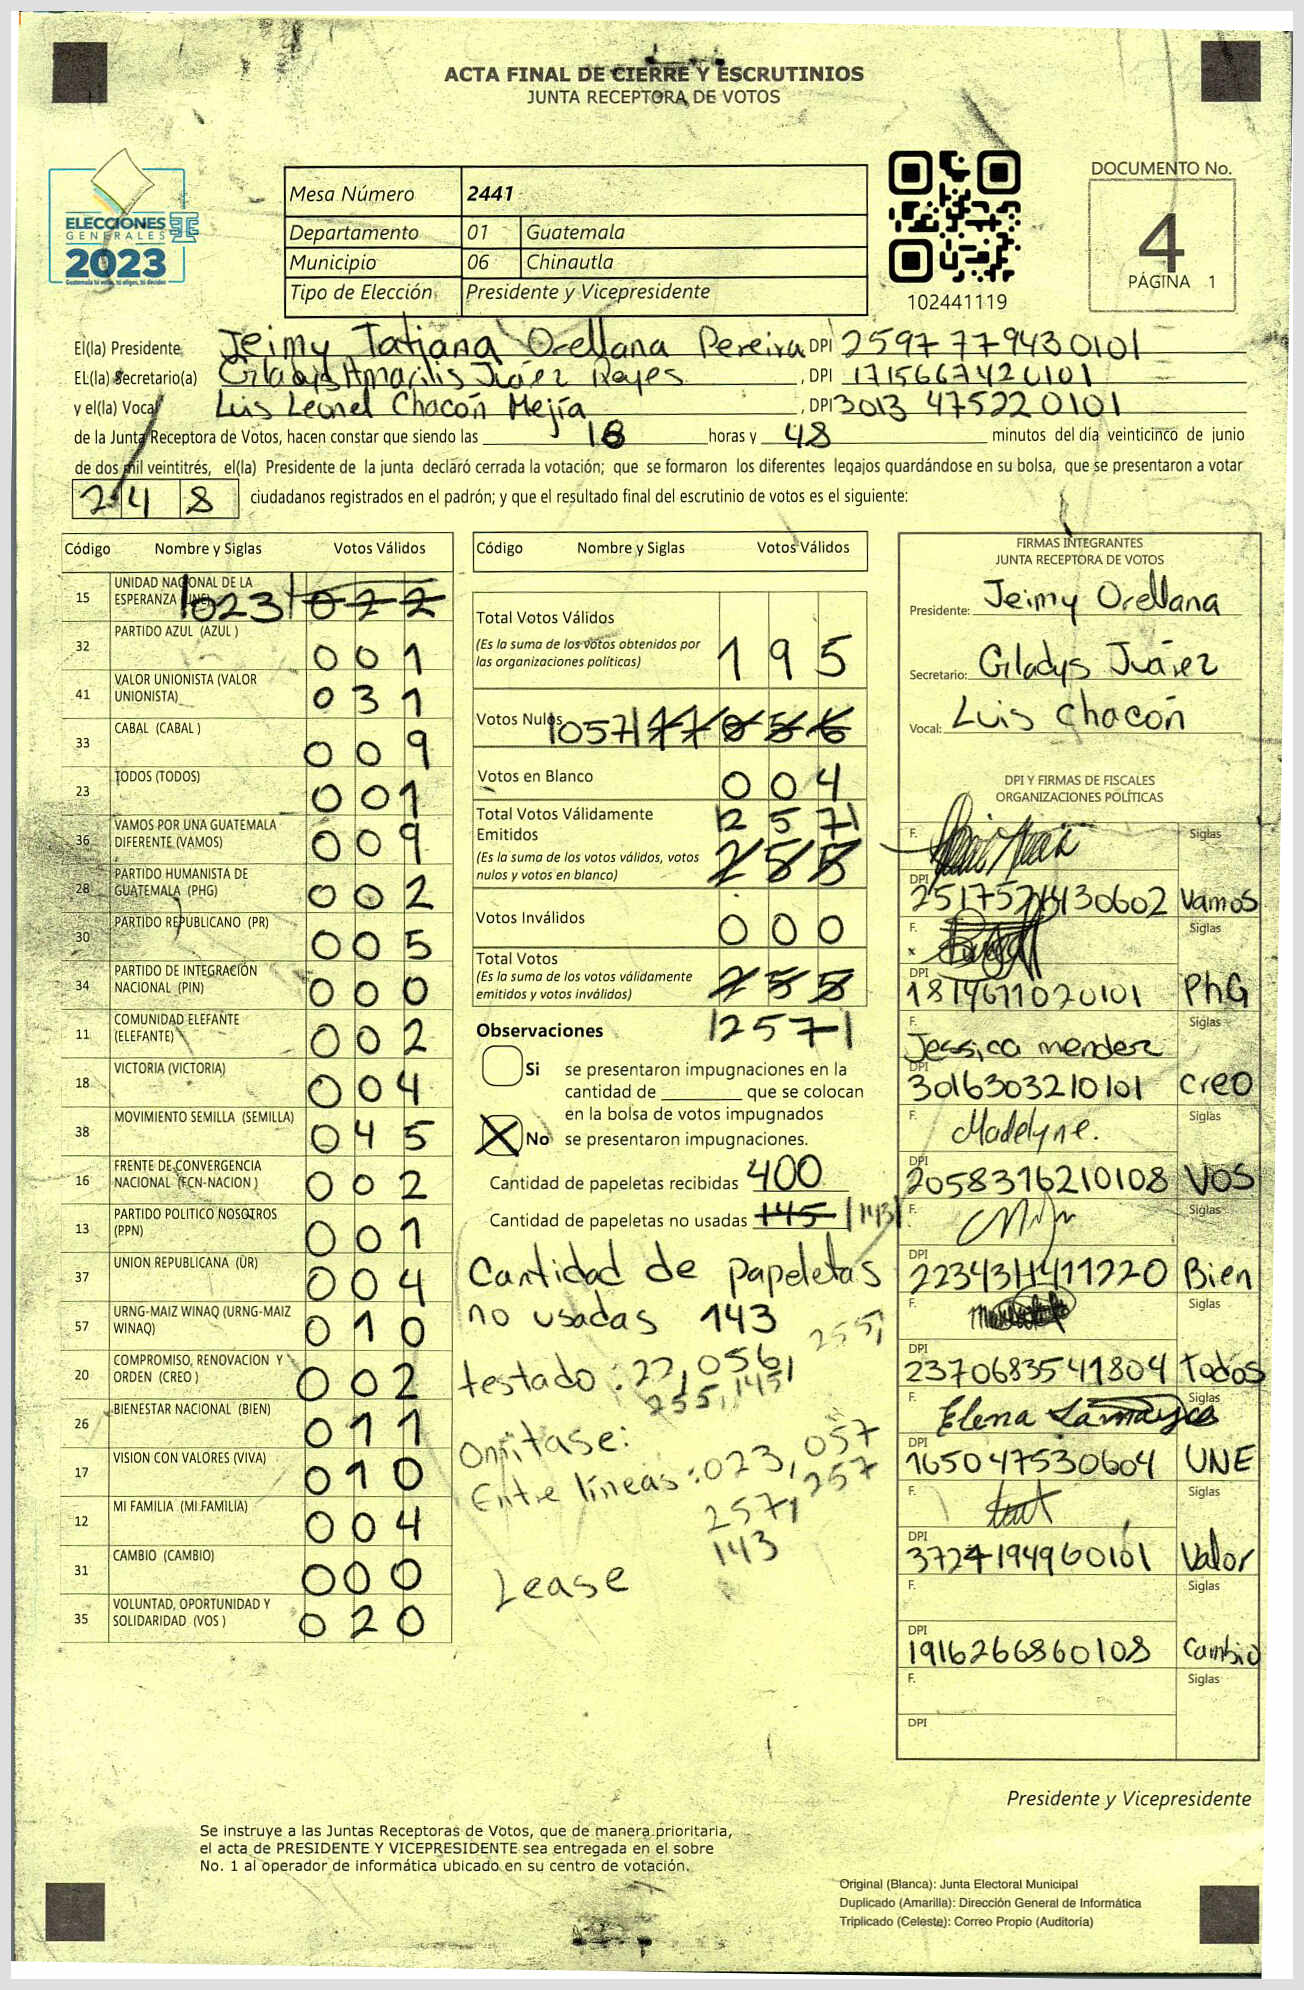 ACTA FINAL DE CIERRE Y ESCRUTINIOS
JUNTA RECEPTORA DE VOTOS
ELECCIONES
GENERALES
2023
Guatemala tú votas, tú eliges, tú decides
Mesa Número 2441
Departamento 01 Guatemala
Municipio 06 Chinautla
Tipo de Elección Presidente y Vicepresidente
102441119
DOCUMENTO No.
4
PÁGINA 1
El(la) Presidente Jeimy Tatiana Orellana Pereira DPI 2597 77943 0101
EL(la) Secretario(a) Gladys Amarilis Juárez Reyes , DPI 1715667420101
y el(la) Vocal Luis Leonel Chacón Mejía , DPI 3013 47522 0101
de la Junta Receptora de Votos, hacen constar que siendo las 18 horas y 48 minutos del día veinticinco de junio
de dos mil veintitrés, el(la) Presidente de la junta declaró cerrada la votación; que se formaron los diferentes legajos guardándose en su bolsa, que se presentaron a votar
248 ciudadanos registrados en el padrón; y que el resultado final del escrutinio de votos es el siguiente:
Código Nombre y Siglas Votos Válidos
15 UNIDAD NACIONAL DE LA ESPERANZA (UNE) |023| 022
32 PARTIDO AZUL (AZUL ) 001
41 VALOR UNIONISTA (VALOR UNIONISTA) 031
33 CABAL (CABAL ) 009
23 TODOS (TODOS) 001
36 VAMOS POR UNA GUATEMALA DIFERENTE (VAMOS) 009
28 PARTIDO HUMANISTA DE GUATEMALA (PHG) 002
30 PARTIDO REPUBLICANO (PR) 005
34 PARTIDO DE INTEGRACIÓN NACIONAL (PIN) 000
11 COMUNIDAD ELEFANTE (ELEFANTE) 002
18 VICTORIA (VICTORIA) 004
38 MOVIMIENTO SEMILLA (SEMILLA) 045
16 FRENTE DE CONVERGENCIA NACIONAL (FCN-NACION ) 002
13 PARTIDO POLITICO NOSOTROS (PPN) 001
37 UNION REPUBLICANA (UR) 004
57 URNG-MAIZ WINAQ (URNG-MAIZ WINAQ) 010
20 COMPROMISO, RENOVACION Y ORDEN (CREO ) 002
26 BIENESTAR NACIONAL (BIEN) 011
17 VISION CON VALORES (VIVA) 010
12 MI FAMILIA (MI FAMILIA) 004
31 CAMBIO (CAMBIO) 000
35 VOLUNTAD, OPORTUNIDAD Y SOLIDARIDAD (VOS ) 020
Código Nombre y Siglas Votos Válidos
Total Votos Válidos
(Es la suma de los votos obtenidos por
las organizaciones políticas) 195
Votos Nulos |057| 056
Votos en Blanco 004
Total Votos Válidamente |257|
Emitidos
(Es la suma de los votos válidos, votos 255
nulos y votos en blanco)
Votos Inválidos 000
Total Votos
(Es la suma de los votos válidamente 255
emitidos y votos inválidos)
Observaciones |257|
Si se presentaron impugnaciones en la
cantidad de ________ que se colocan
en la bolsa de votos impugnados
No se presentaron impugnaciones.
Cantidad de papeletas recibidas 400
Cantidad de papeletas no usadas 145 |143|
Cantidad de papeletas
no usadas 143
testado : 22, 056, 255,
255, 145
Omitase:
Entre líneas : 023, 057
257, 257
143
Lease
FIRMAS INTEGRANTES
JUNTA RECEPTORA DE VOTOS
Presidente: Jeimy Orellana
Secretario: Gladys Juárez
Vocal: Luis Chacón
DPI Y FIRMAS DE FISCALES
ORGANIZACIONES POLÍTICAS
F. Siglas
DPI Vamos
F. Siglas
DPI 1814611020101 PhG
F. Siglas
Jessica mendez
DPI 3016303210101 Creo
F. Madelyne. Siglas
DPI 2058376210108 VOS
F. Siglas
DPI Bien
F. Siglas
DPI 2370683541804 todos
F. Elena Siglas
DPI 165047530604 UNE
F. Siglas
DPI 3724194960101 Valor
F. Siglas
DPI 1916266860108 Cambio
F. Siglas
DPI
Presidente y Vicepresidente
Se instruye a las Juntas Receptoras de Votos, que de manera prioritaria,
el acta de PRESIDENTE Y VICEPRESIDENTE sea entregada en el sobre
No. 1 al operador de informática ubicado en su centro de votación.
Original (Blanca): Junta Electoral Municipal
Duplicado (Amarilla): Dirección General de Informática
Triplicado (Celeste): Correo Propio (Auditoría)